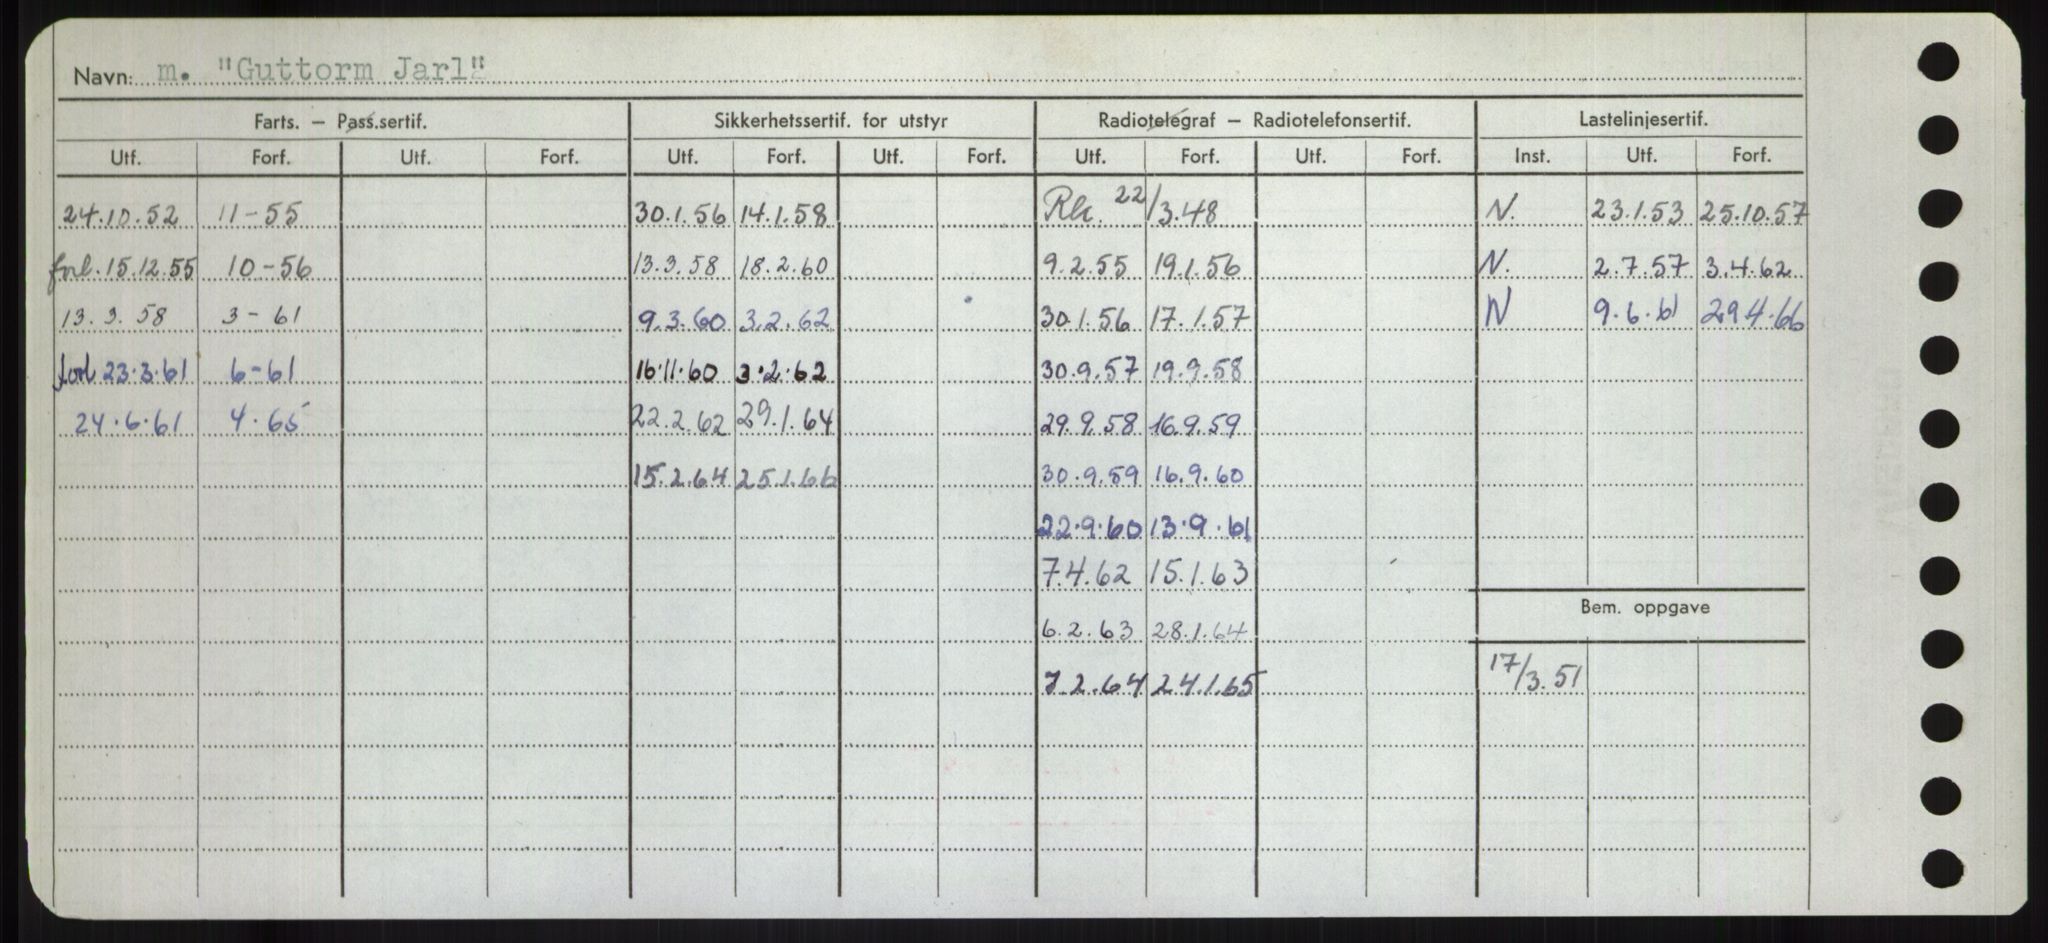 Navn: m. "Guttorm Jarl"
Farts. — Pass.sertif. Sikkerhetssertif. for utstyr Radiotelegraf — Radiotelefonsertif. Lastelinjesertif.
Utf. Forf. Utf. Forf. Utf. Forf. Utf. Forf. Utf. Forf. Utf. Forf. Inst. Utf. Forf.
24.10.52 11-55 30.1.56 14.1.58 22/3.48 N. 23.1.53 25.10.57
forl. 15.12.55 10-56 13.3.58 18.2.60 9.2.55 19.1.56 N. 2.7.57 3.4.62
13.3.58 3-61 9.3.60 3.2.62 30.1.56 17.1.57 N 9.6.61 29.4.66
forl 23.3.61 6-61 16.11.60 3.2.62 30.9.57 19.9.58
24.6.61 4.65 22.2.62 29.1.64 29.9.58 16.9.59
15.2.64 25.1.66 30.9.59 16.9.60
22.9.60 13.9.61
7.4.62 15.1.63
Bem. oppgave
6.2.63 28.1.64
17/3.51
7.2.64 24.1.65